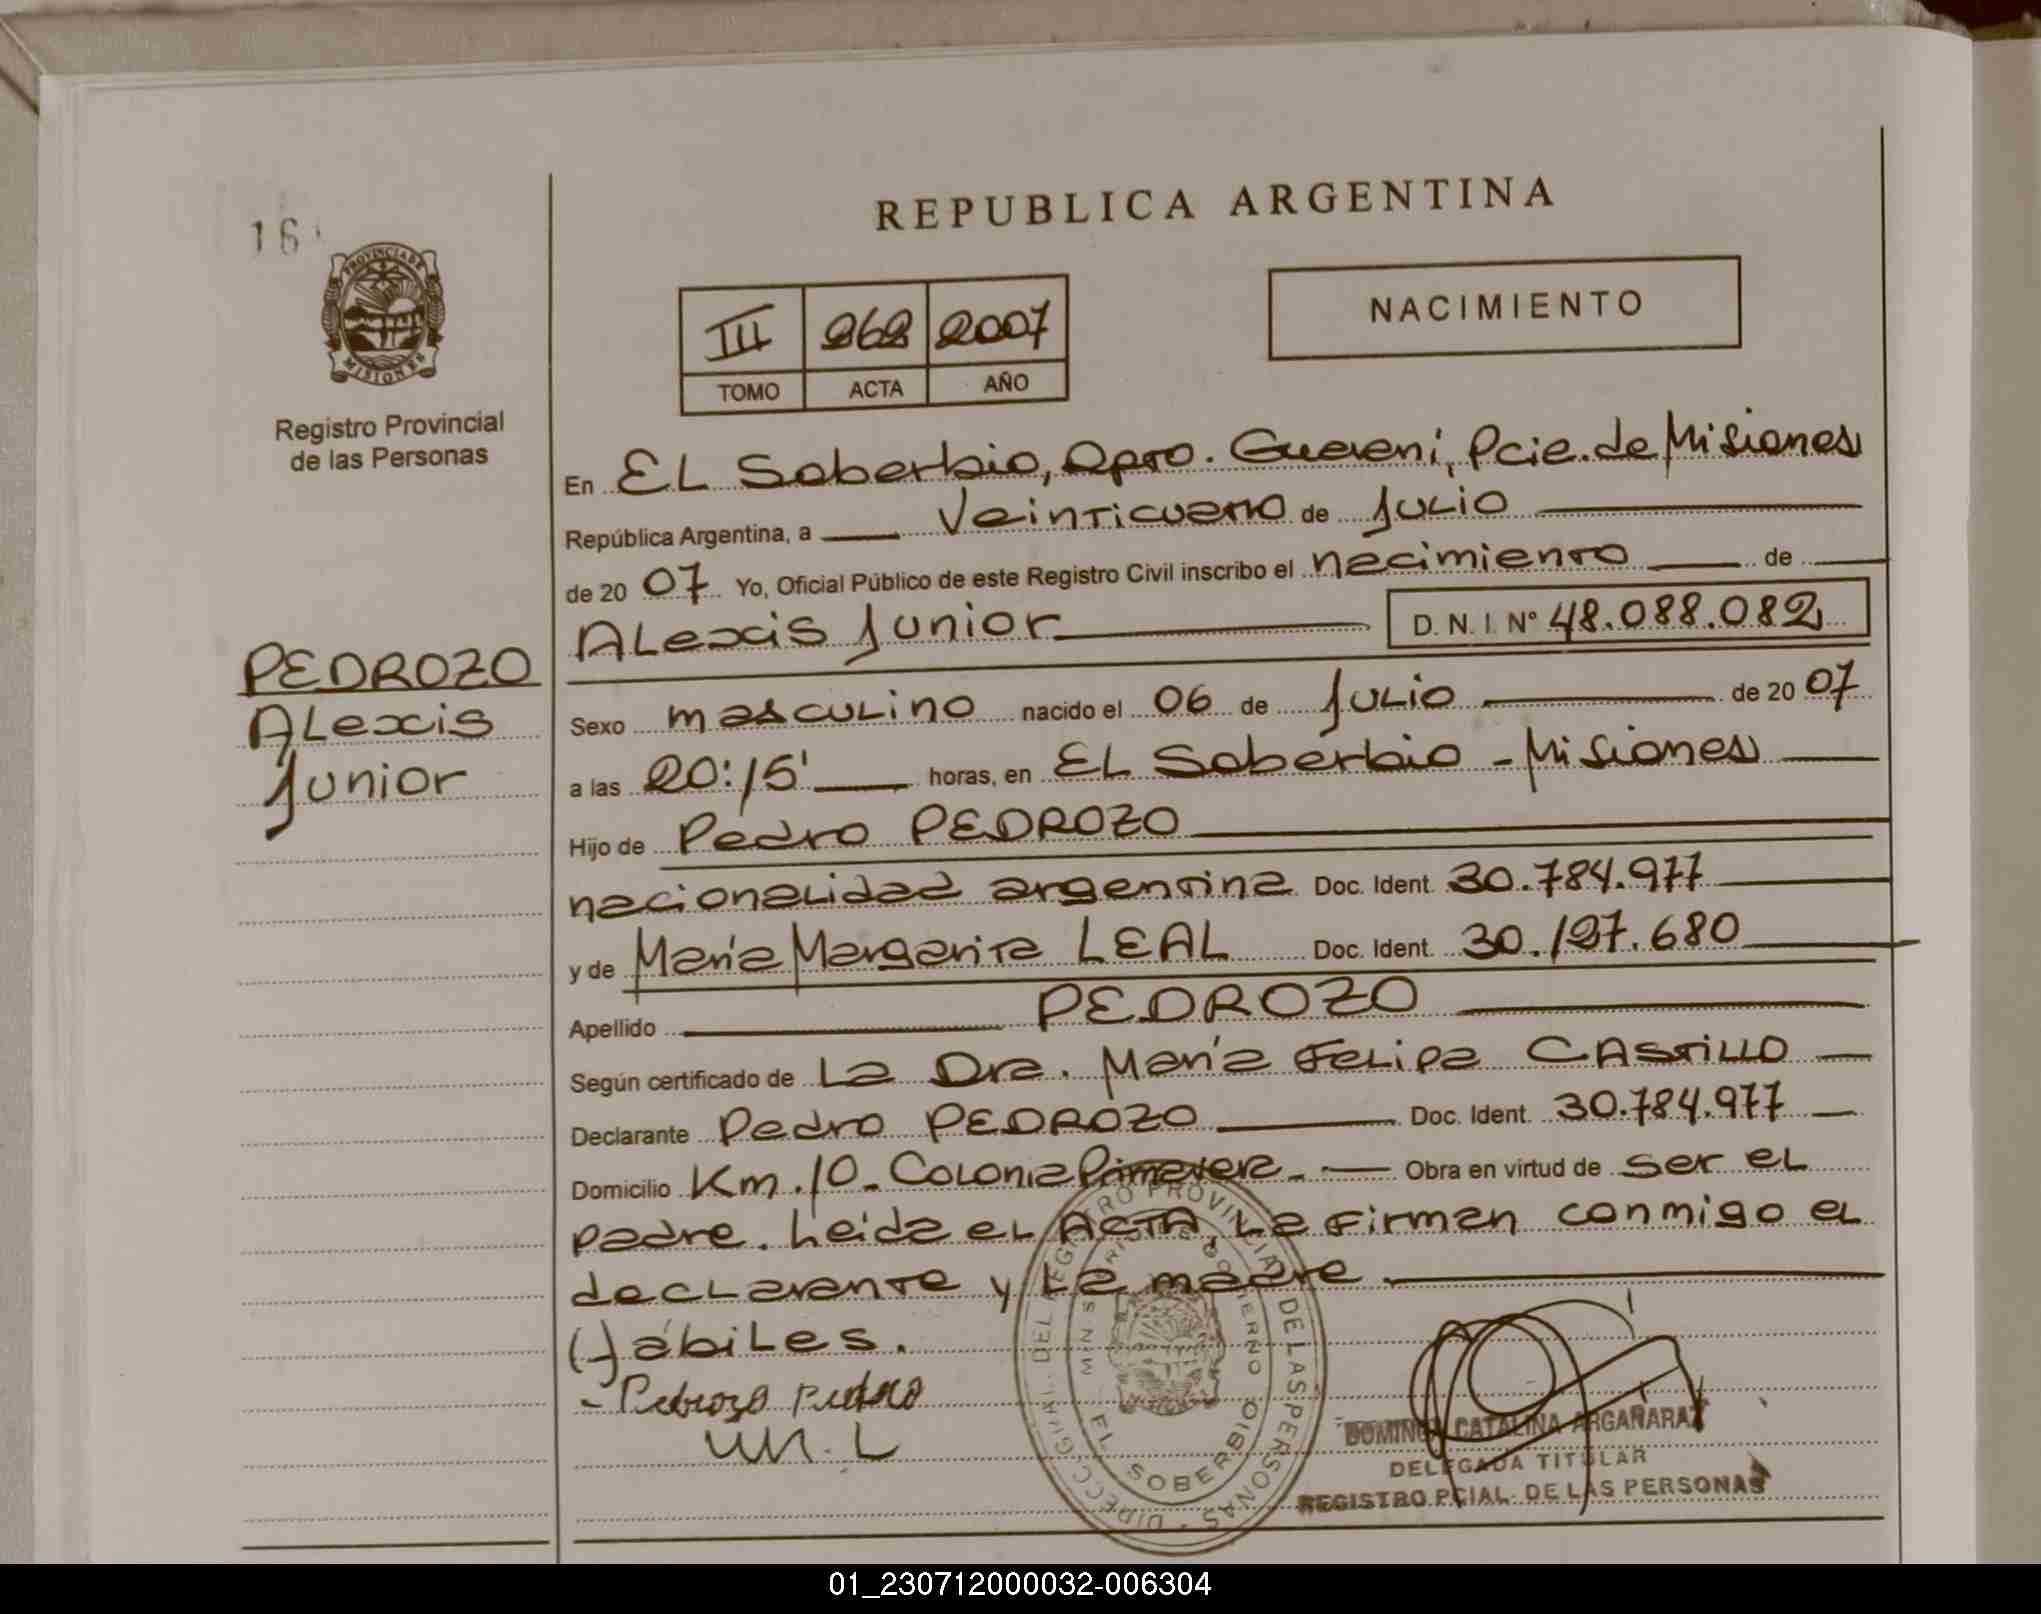 REPUBLICA ARGENTINA
16
PROVINCIA DE
MISIONES
Registro Provincial
de las Personas
III 262 2007
TOMO ACTA AÑO
NACIMIENTO
En EL Soberbio, Dpto. Guaraní, Pcia. de Misiones
República Argentina, a Veinticuatro de Julio
de 2007 Yo, Oficial Público de este Registro Civil inscribo el nacimiento de
Alexis Junior D.N.I. Nº 48.088.082
PEDROZO
Alexis
Junior
Sexo masculino nacido el 06 de Julio de 2007
a las 20:15' horas, en EL Soberbio - Misiones
Hijo de Pedro PEDROZO
nacionalidad argentina Doc. Ident. 30.784.977
y de María Margarita LEAL Doc. Ident. 30.127.680
Apellido PEDROZO
Según certificado de La Dra. María Felipa CASTILLO
Declarante Pedro PEDROZO Doc. Ident. 30.784.977
Domicilio Km. 10 - Colonia Primavera - Obra en virtud de ser el
padre. Leída el ACTA, la firman conmigo el
declarante y la madre
Hábiles.
- Pedrozo Pedro
M. L
DIRECC. GRAL. DEL REGISTRO PROVINCIAL DE LAS PERSONAS
MINISTERIO DE GOBIERNO
EL SOBERBIO
DOMINGA CATALINA ARGAÑARAZ
DELEGADA TITULAR
REGISTRO PCIAL. DE LAS PERSONAS
01_230712000032-006304